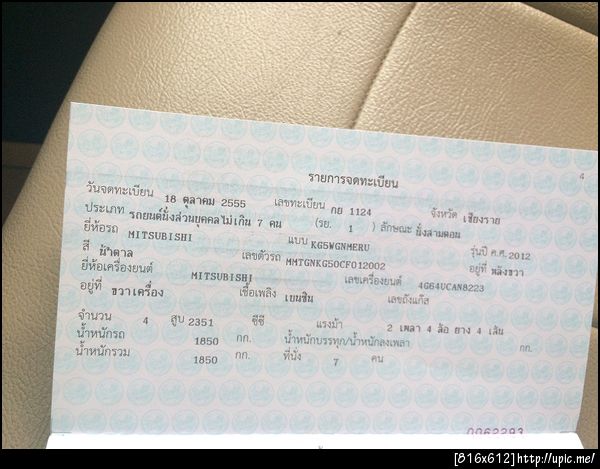 4
รายการจดทะเบียน
วันจดทะเบียน 18 ตุลาคม 2555 เลขทะเบียน กย 1124 จังหวัด เชียงราย
ประเภท รถยนต์นั่งส่วนบุคคลไม่เกิน 7 คน (รย. 1 ) ลักษณะ นั่งสามตอน
ยี่ห้อรถ MITSUBISHI แบบ KG5WGNMERU รุ่นปี ค.ศ. 2012
สี น้ำตาล เลขตัวรถ MMTGNKG50CF012002 อยู่ที่ พลังขวา
ยี่ห้อเครื่องยนต์ MITSUBISHI เลขเครื่องยนต์ 4G64UCAN8223
อยู่ที่ ขวาเครื่อง เชื้อเพลิง เบนซิน เลขถังแก๊ส
จำนวน 4 สูบ 2351 ซีซี แรงม้า 2 เพลา 4 ล้อ ยาง 4 เส้น
น้ำหนักรถ 1850 กก. น้ำหนักบรรทุก/น้ำหนักลงเพลา กก.
น้ำหนักรวม 1850 กก. ที่นั่ง 7 คน
0062293
[816x612]http://upic.me/